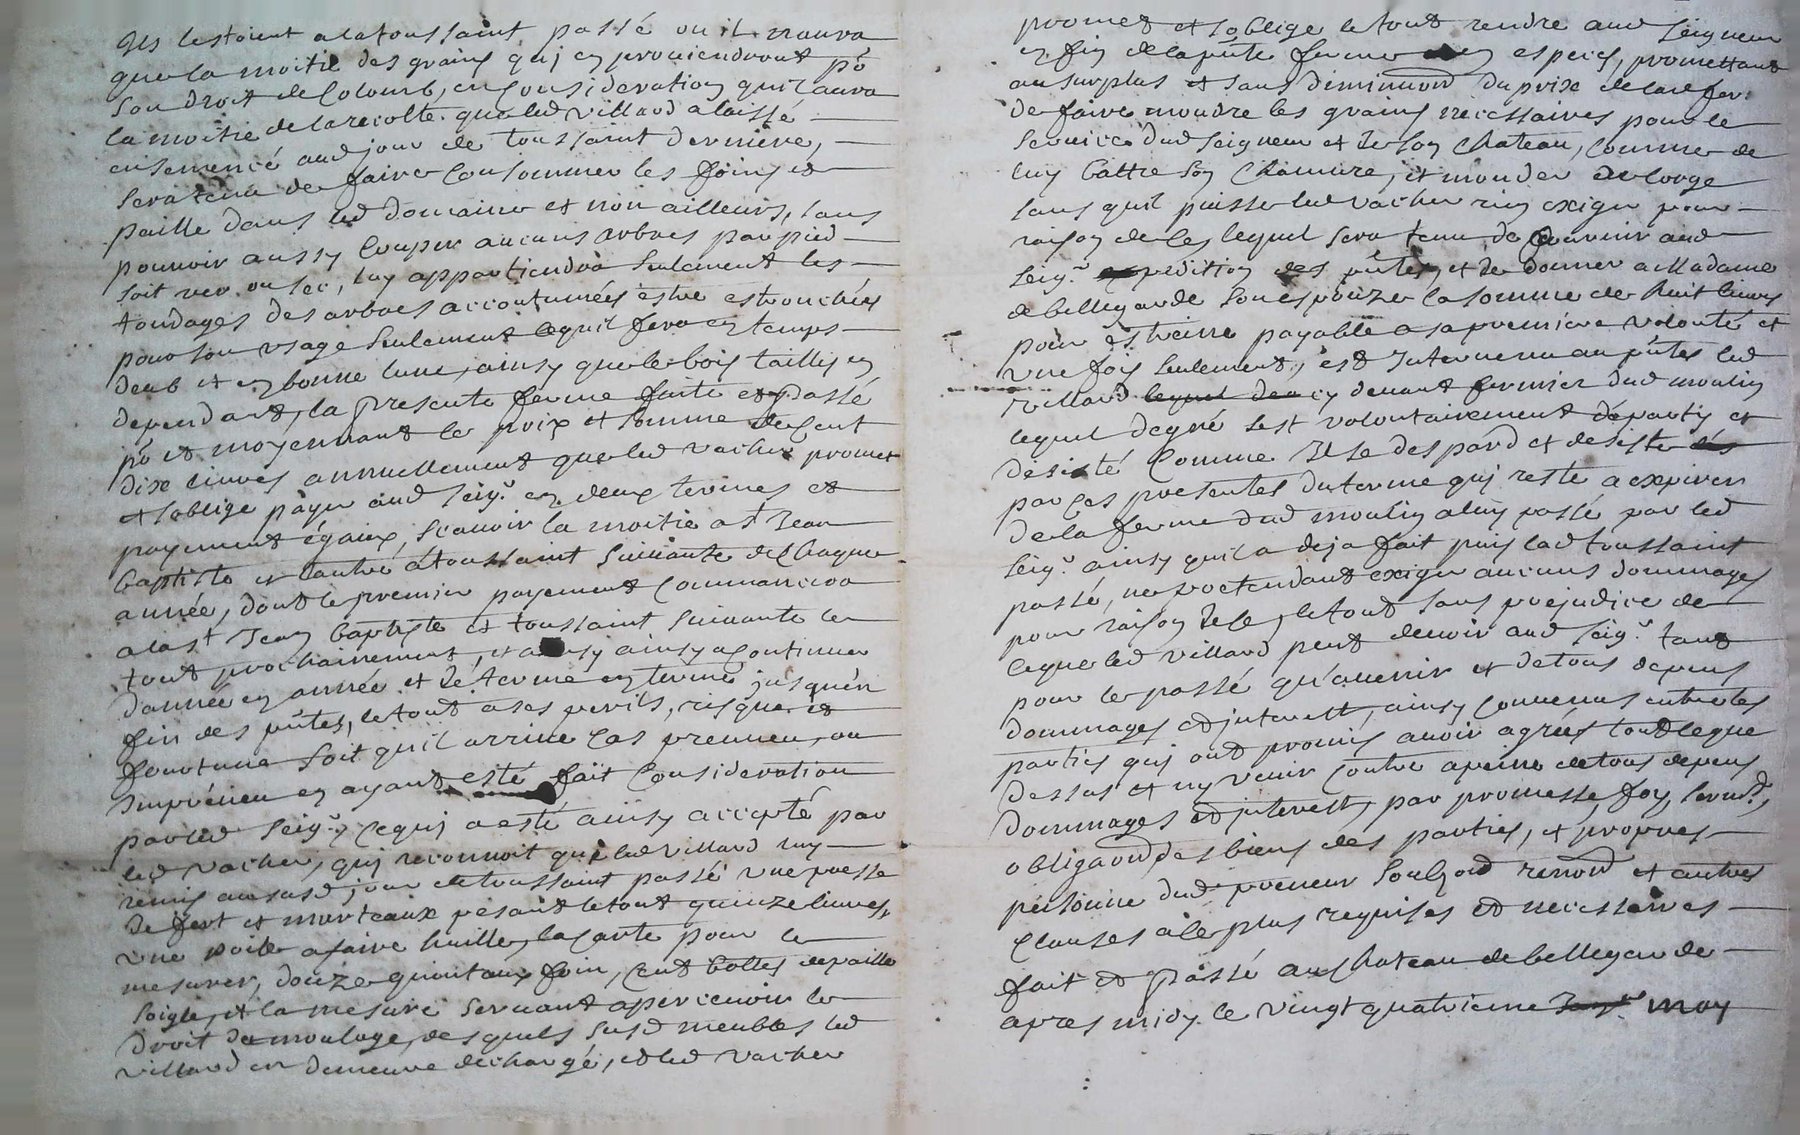 Ils lestoient a la toussaint passé ou il naura
que la moitié des grains qui en proviendront po
son droit de Colomb, en consideration quil aura
la moitié de la recolte que led villard a laissé
ensemencé aud jour de toussaint derniere,
sera tenu de faire consommer les foins et
paille dans led domaine et non ailleurs, sans
pouvoir aussy couper aucuns arbres par pied
soit ver ou sec, luy appartiendra seulement les
tondages des arbres accoutumées estre estronchées
pour son usage seulement lequil fera en temps
deub et en bonne lune, ainsy que le bois taillis en
dependant, la presente ferme faite et passé
po et moyennant le prix et somme de cent
dix livres annuellement que led vacher promet
et soblige payer aud seigr en deux termes et
payement égaux, scavoir la moitié a st Jean
baptiste et lautre a toussaint suivante de chaque
année, dont le premier payement commancera
a la st Jean baptiste et toussaint suivante le
tout prochainement, et ainsy a continuer
dannée en année et de terme en terme jusquen
fin des pntes, le tout a ses perils, risque et
fourtune soit quil arrive cas preveu, ou
Impréveu en ayant esté fait consideration
par led seigr, ce qui a esté ainsy accepté par
led vacher, qui reconnoit que led villard luy
remis au susd jour de toussaint passé une presse
de fert et marteaux pesant le tout quinze livres,
une poile a faire huille, la carte pour le
mesurer, douze quintaux foin, cent bottes de paille
soigle, et la mesure servant a percevoir le
droit de moulage, desquels susd meubles led
villard en demeure déchargé, et led vacher
promet et soblige le tout rendre aud seigneur
en fin de la pnte ferme en especes, promettant
au surplus et sans diminuon du prix de lad fer.
de faire moudre les grains necessaires pour le
service dud seigneur et de son chateau, comme de
luy battre son chanvre, et monder de lorge
sans quil puisse led vacher rien exiger pour
raison de ce, lequel sera tenu de fournir aud
seigr expedition des pntes, et de donner a Madame
de bellegarde son espouze la somme de huit livres
pour estraine payable a sa premiere volonté et
une fois seulement, est Intervenu au pntes led
villard cy devant fermier dud moulin
lequel de gré sest volontairement départy et
desisté comme Il se despard et desiste
par ces presentes du terme qui reste a expirer
de la ferme dud moulin a luy passé par led
seigr ainsy quil a deja fait puis lad toussaint
passé, ne pretendant exiger aucuns dommages
pour raison de ce, le tout sans prejudice de
ce que led villard peut devoir aud seigr tant
pour le passé qu'avenir et de tous depens
dommages et interest, ainsy convenus entre les
parties qui ont promis avoir agréés tout ce que
dessus et ny venir contre a peine de tous depens
dommages et interest, par promesse, foy, sermt,
obligaon des biens des parties, et propres
personne dud preneur renon et autres
clauses a ce plus requises et necessaires
fait et passé au chateau de bellegarde
apres midy le vingt quatrieme may